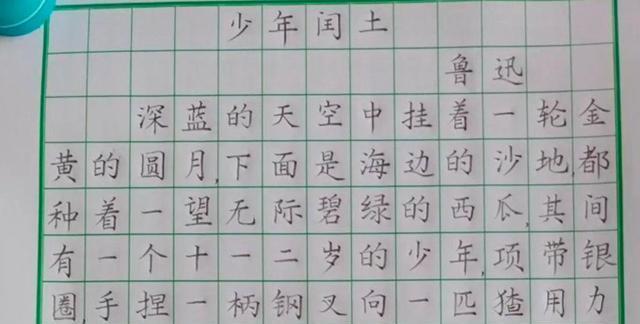 少年闰土
鲁迅
深蓝的天空中挂着一轮金
黄的圆月,下面是海边的沙地,都
种着一望无际碧绿的西瓜,其间
有一个十一二岁的少年,项带银
圈,手捏一柄钢叉向一匹猹用力